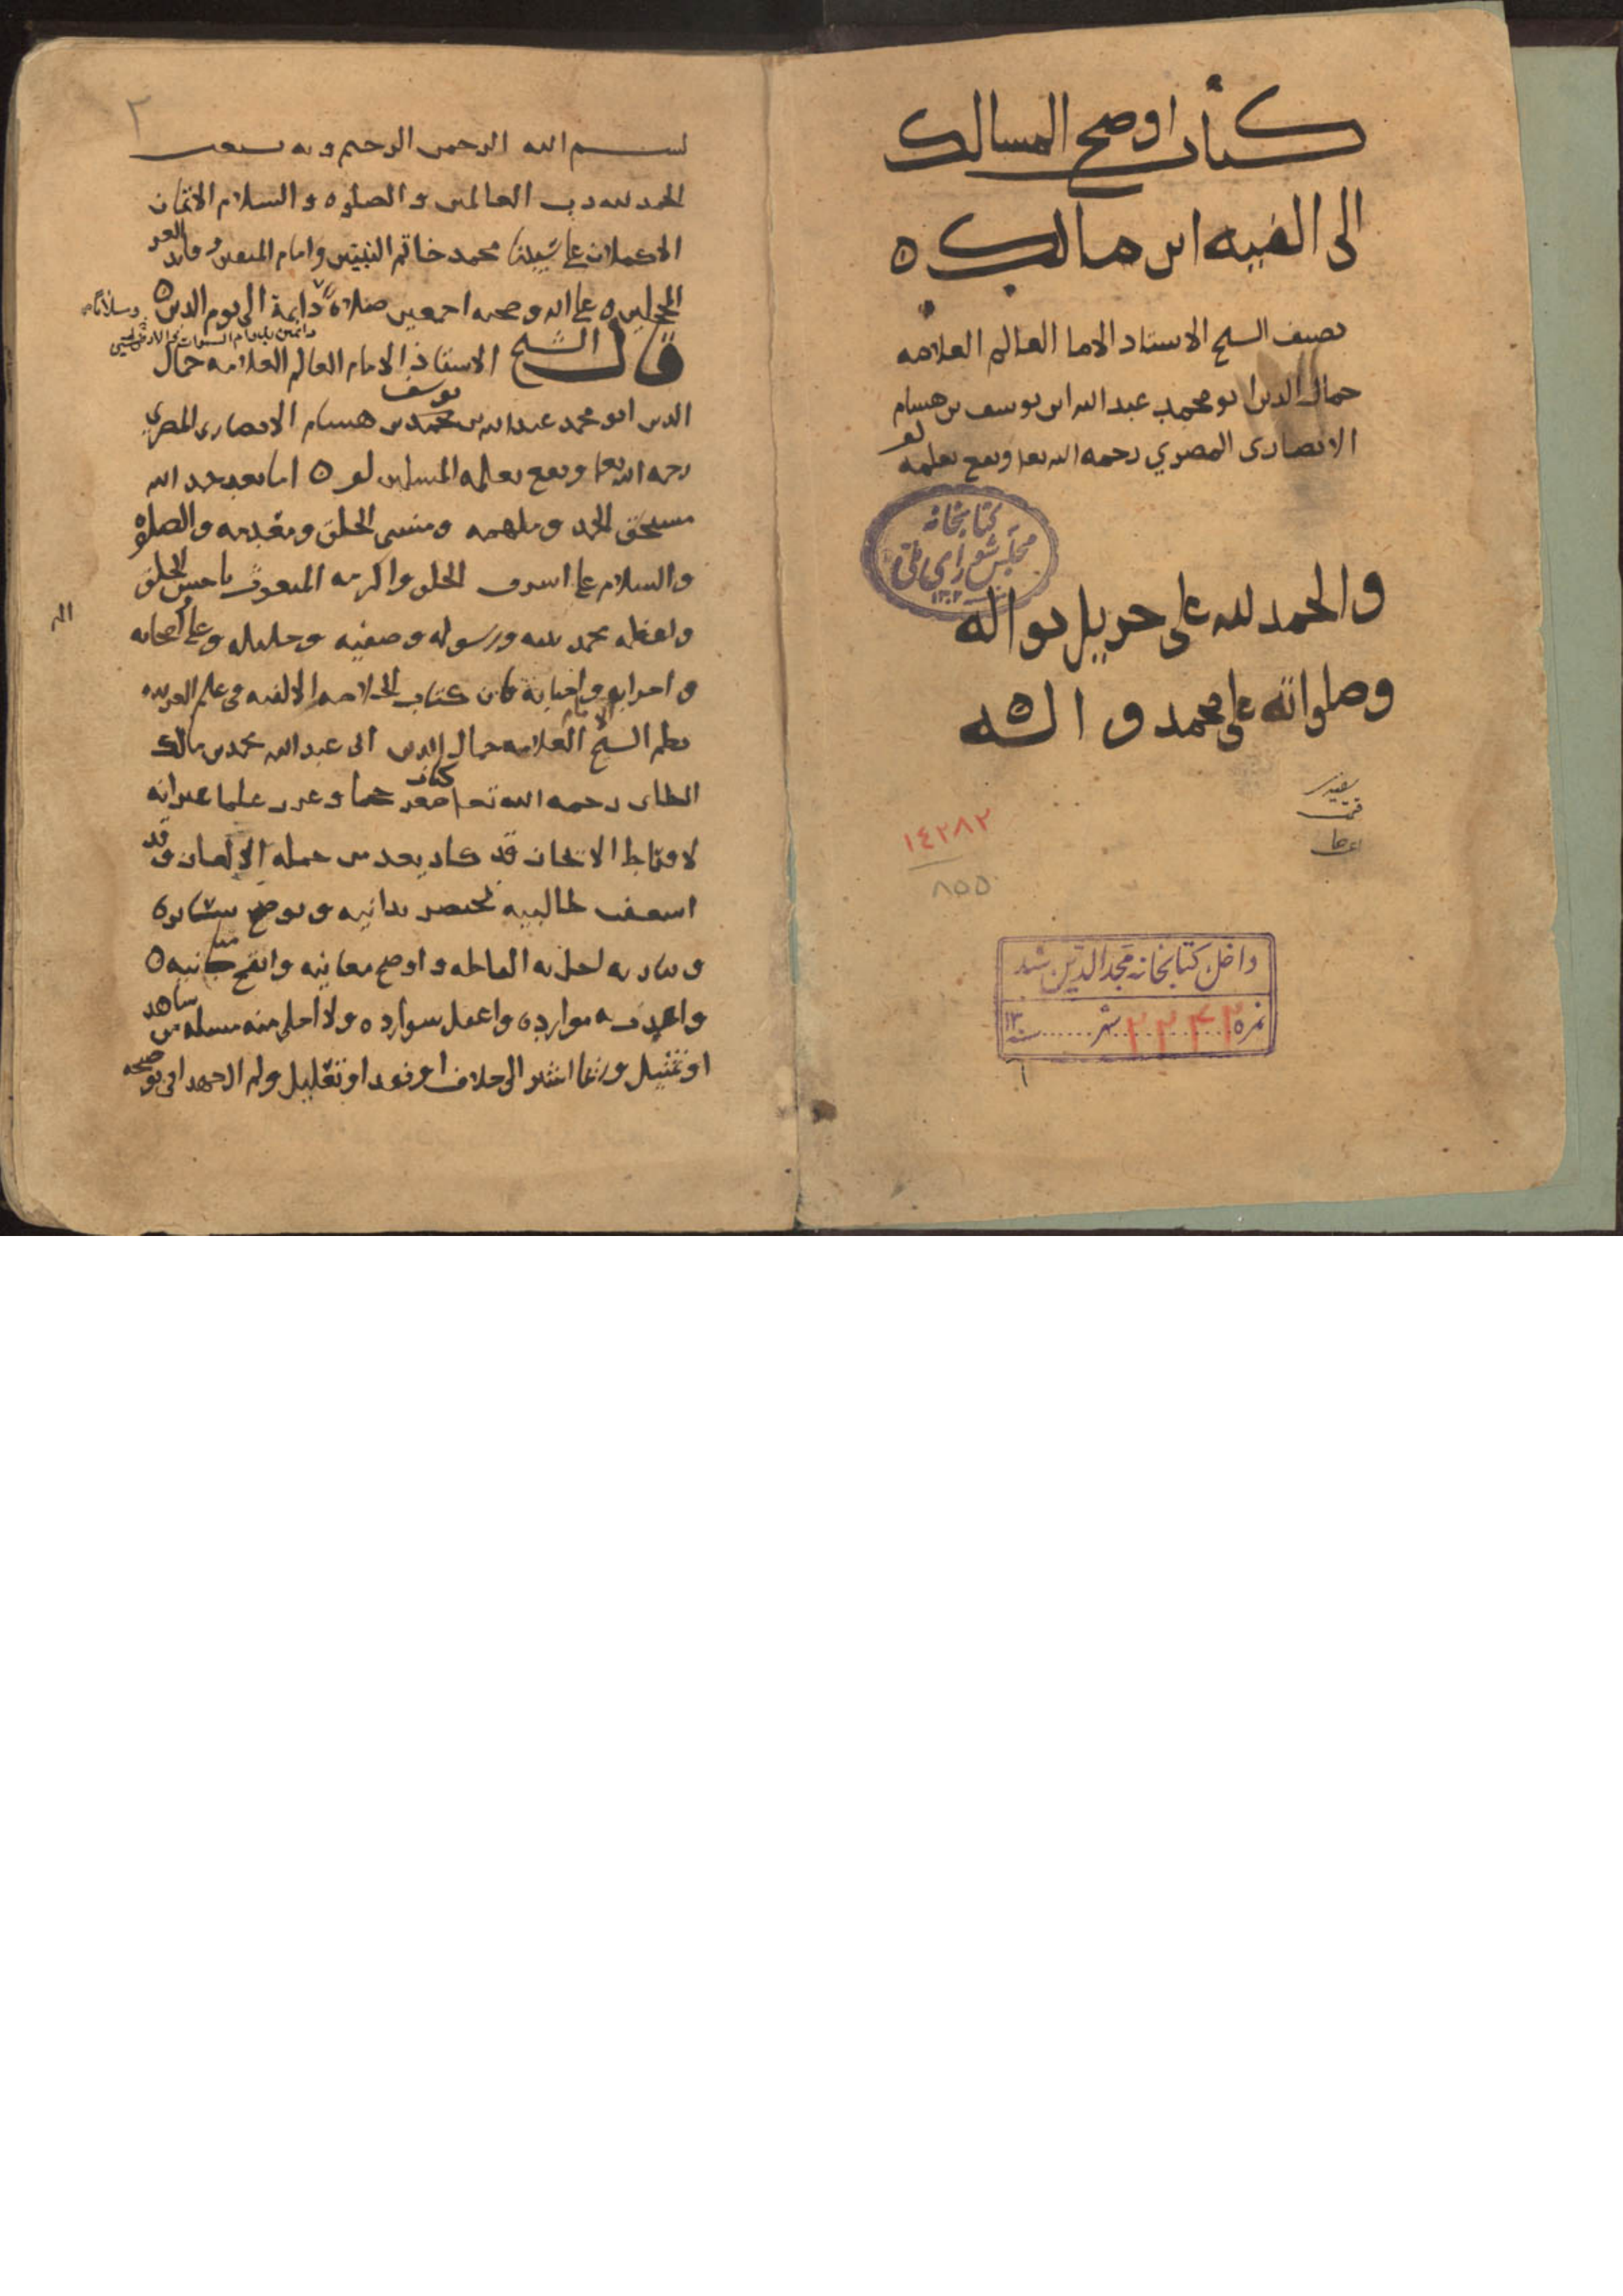 كتاب اوضح المسالك
الى الفيه ابن مالك ه
تصنيف الشيخ الاستاد الاما العالم العلامه
جمال الدين ابو محمد عبد الله ابن يوسف بن هشام
الانصاري المصري رحمه الله تعا ونفع بعلمه
كتابخانه
مجلس شورای ملی
والحمد لله على جزيل نواله
وصلواته على محمد و اله
١٤٢٨٢
٨٥٥
داخل کتابخانه مجد الدین شد
نمره شهر سنه ١٣٠
٢
بسم الله الرحمن الرحيم وبه نستعين
الحمد لله رب العالمين والصلوه والسلام الاتمان
الاكملان على سيدنا محمد خاتم النبيين وامام المتقين وقايد الغر
المحجلين ه على اله وصحبه اجمعين صلاة دايمة الى يوم الدين ه
قال الشيخ الاستاذ الامام العالم العلامه جمال
الدين ابو محمد عبد الله بن محمد يوسف بن هشام الانصاري المصري
رحمه الله تعا ونفع بعلمه المسلمين ه اما بعد حمد الله
مستحق الحمد وملهمه ومنشي الخلق ومعدمه والصلوه
والسلام على اشرف الخلق واكرمه المبعوث باحسن الخلق
واعظمه محمد نبيه ورسوله وصفيه وخليله وعلى اصحابه
واحزابه واحبابه فان كتاب الخلاصه الالفيه في علم العربيه
نظم الشيخ الامام العلامه جمال الدين ابي عبد الله محمد بن مالك
الطاى رحمه الله تعا كتاب صغر حجما وغزر علما غير انه
لافراط الايجاز قد كاد يعد من جملة الالغاز وقد
اسعفت طالبيه بمختصر يدانيه وتوضيح يسايره
ويباريه احل به الفاظه واوضح معانيه وانقح مبانيه ه
واعذب به موارده واعقل شوارده ولا اخلى منه مسله من شاهد
او تمثيل وربما اشير الى خلاف او نقد او تعليل ولم ال جهدا في توضيحه